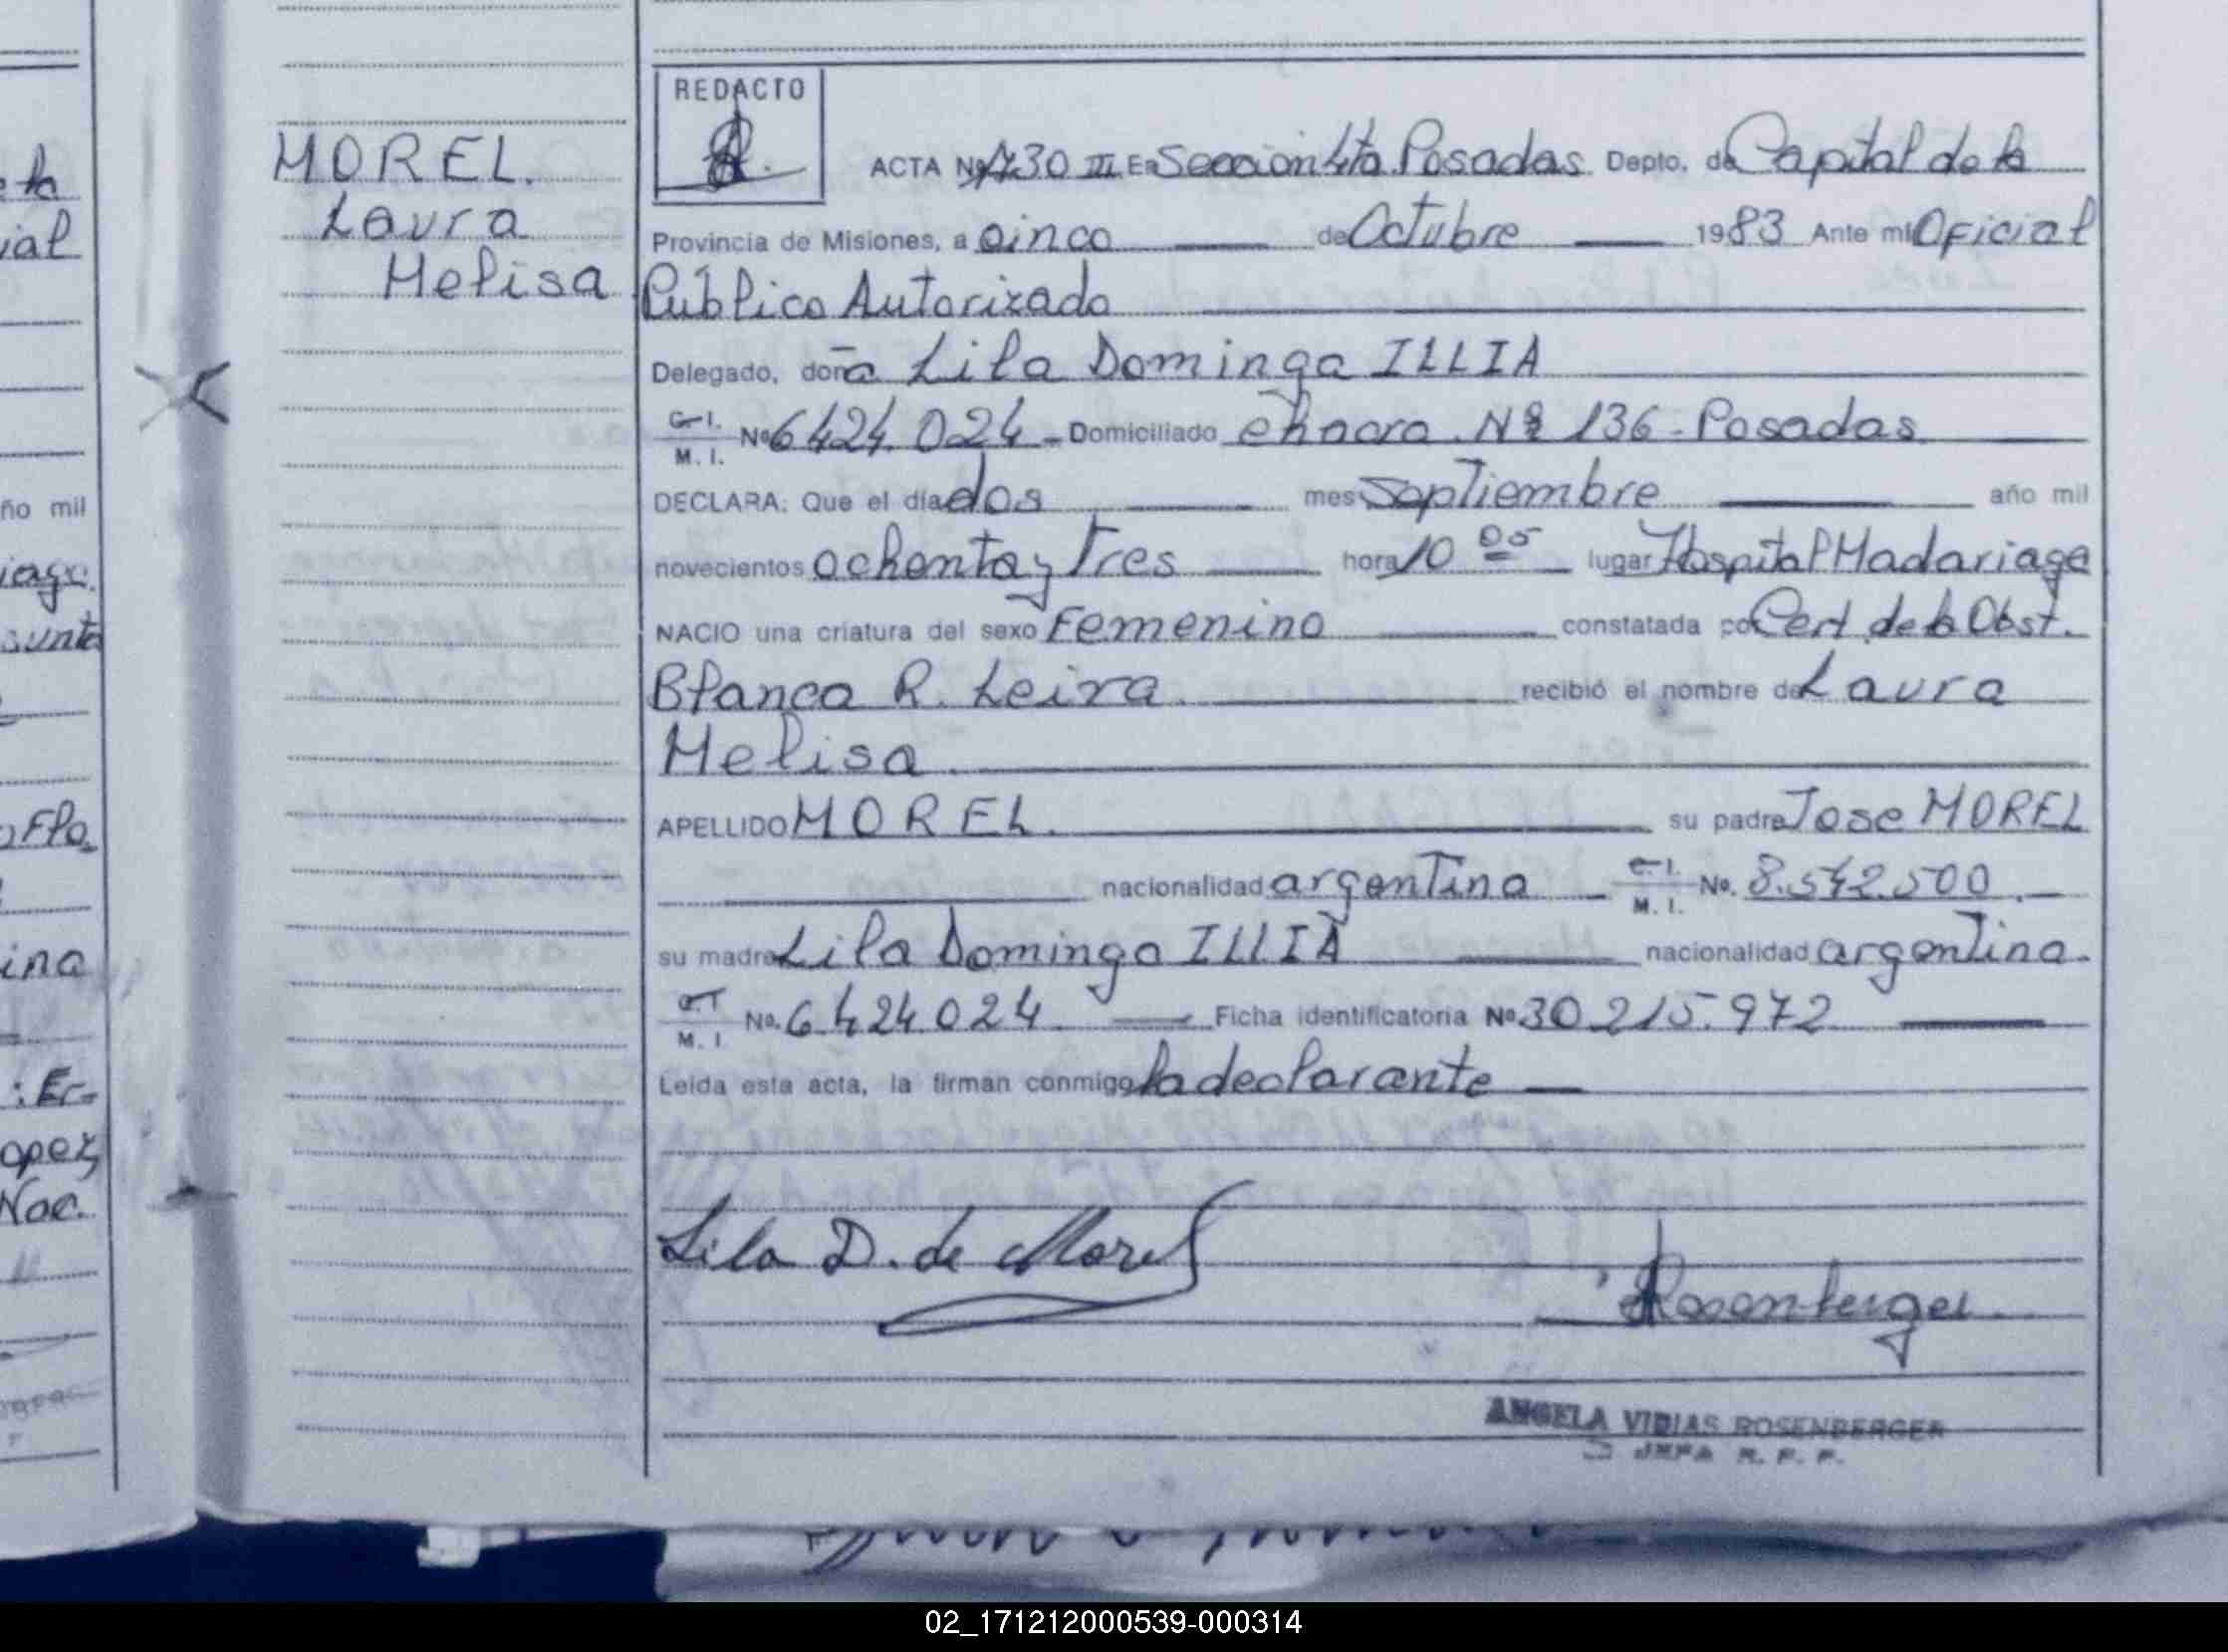 REDACTO
MOREL.
Laura
Melisa
ACTA Nº 1730 III En Seccion 4ta. Posadas Depto. de Capital de la
Provincia de Misiones, a cinco de Octubre 1983 Ante mi Oficial
Público Autorizado
Delegado, doña Lila Dominga ILLIA
C.I. M.I. Nº 6424.024 - Domiciliado chacra. Nº 136 - Posadas
DECLARA: Que el día dos mes Septiembre año mil
novecientos ochenta y Tres hora 10 05 lugar Hospital Madariaga
NACIO una criatura del sexo Femenino constatada por Cert. de la Obst.
Blanca R. Leiva. recibió el nombre de Laura
Melisa.
APELLIDO MOREL. su padre Jose MOREL
nacionalidad argentina C.I. M.I. No. 8.542.500.
su madre Lila Dominga ILLIA nacionalidad argentina.
C.I. M.I. No. 6.424.024. Ficha identificatoria Nº 30.215.972
Leída esta acta, la firman conmigo la declarante
Lila D. de Morel
Rosenberger
ANGELA VIDIAS ROSENBERGER
JEFA R. P. P.
e la
ial
ño mil
iaga.
sunta
Flo.
ina
: Er-
opez,
Nac.
02_171212000539-000314